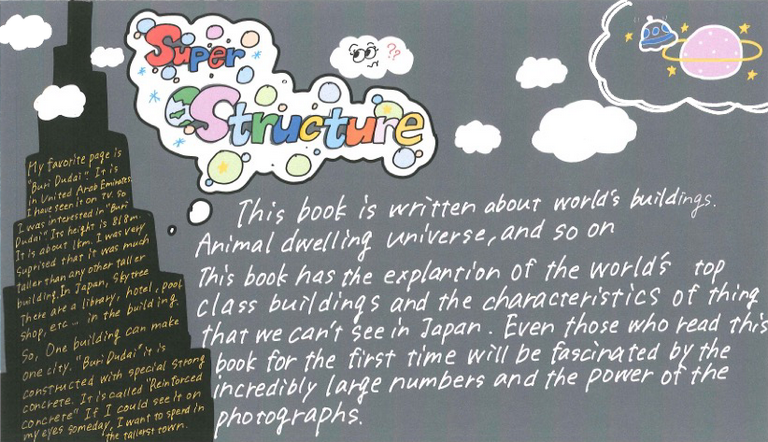 Super
Structure
??
This book is written about world's buildings.
Animal dwelling universe, and so on
This book has the explantion of the world's top
class buildings and the characteristics of thing
that we can't see in Japan. Even those who read this
book for the first time will be fascinated by the
incredibly large numbers and the power of the
photographs.
My favorite page is
"Buri Dudai". It is
in United Arab Emirates.
I have seen it on TV. So
I was interested in "Buri
Dudai" Its height is 818m.
It is about 1km. I was very
Suprised that it was much
taller than any other taller
building. In Japan, Skytree
There are a library, hotel, pool
shop, etc... in the building.
So, One building can make
one city. "Buri Dudai" it is
constructed with special strong
concrete. It is called "Reinforced
concrete" If I could see it on
my eyes someday, I want to spend in
the tallerst town.